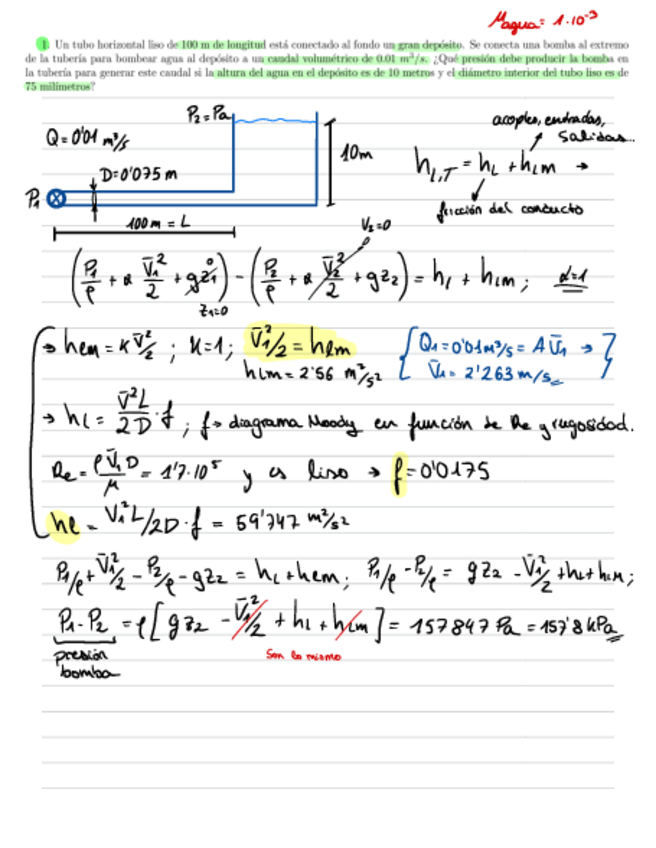 μagua = 1·10⁻³
1. Un tubo horizontal liso de 100 m de longitud está conectado al fondo un gran depósito. Se conecta una bomba al extremo
de la tubería para bombear agua al depósito a un caudal volumétrico de 0.01 m³/s. ¿Qué presión debe producir la bomba en
la tubería para generar este caudal si la altura del agua en el depósito es de 10 metros y el diámetro interior del tubo liso es de
75 milímetros?
P₂ = Pa
Q = 0'01 m³/s
D = 0'075 m
P₁
100 m = L
10m
acoples, entradas, salidas...
h_{l,T} = h_l + h_{lm} →
fricción del conducto
V₂=0
(P₁/ρ + α V̄₁²/2 + gz₁) - (P₂/ρ + α V̄₂²/2 + gz₂) = h_l + h_{lm} ; α=1
0
z₁=0
→ h_{lm} = K V̄²/2 ; K=1 ; V̄₁²/2 = h_{lm}
h_{lm} = 2'56 m²/s²
{ Q₁ = 0'01 m³/s = A V̄₁ → }
V̄₁ = 2'263 m/s
→ h_l = V̄²L/2D · f ; f → diagrama Moody en función de Re y rugosidad.
Re = ρV̄₁D/μ = 1'7·10⁵ y es liso → f = 0'0175
h_l = V₁²L/2D · f = 59'747 m²/s²
P₁/ρ + V̄₁²/2 - P₂/ρ - gz₂ = h_l + h_{lm} ; P₁/ρ - P₂/ρ = gz₂ - V̄₁²/2 + h_l + h_{lm} ;
P₁ - P₂ = ρ[gz₂ - V̄₁²/2 + h_l + h_{lm}] = 157847 Pa = 157'8 kPa
presión bomba
Son lo mismo